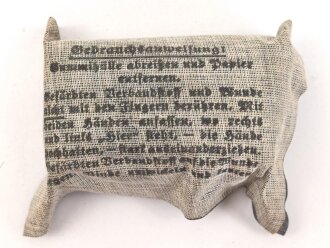 Gebrauchsanweisung!
Gummihülle abreißen und Papier
entfernen.
Gefärbten Verbandstoff und Wunde
nicht mit den Fingern berühren. Mit
Händen anfassen, wo rechts
und links „Hier" steht, — die Hände
hochhalten. — Stark auseinanderziehen
Verbandstoff auf die Wunde